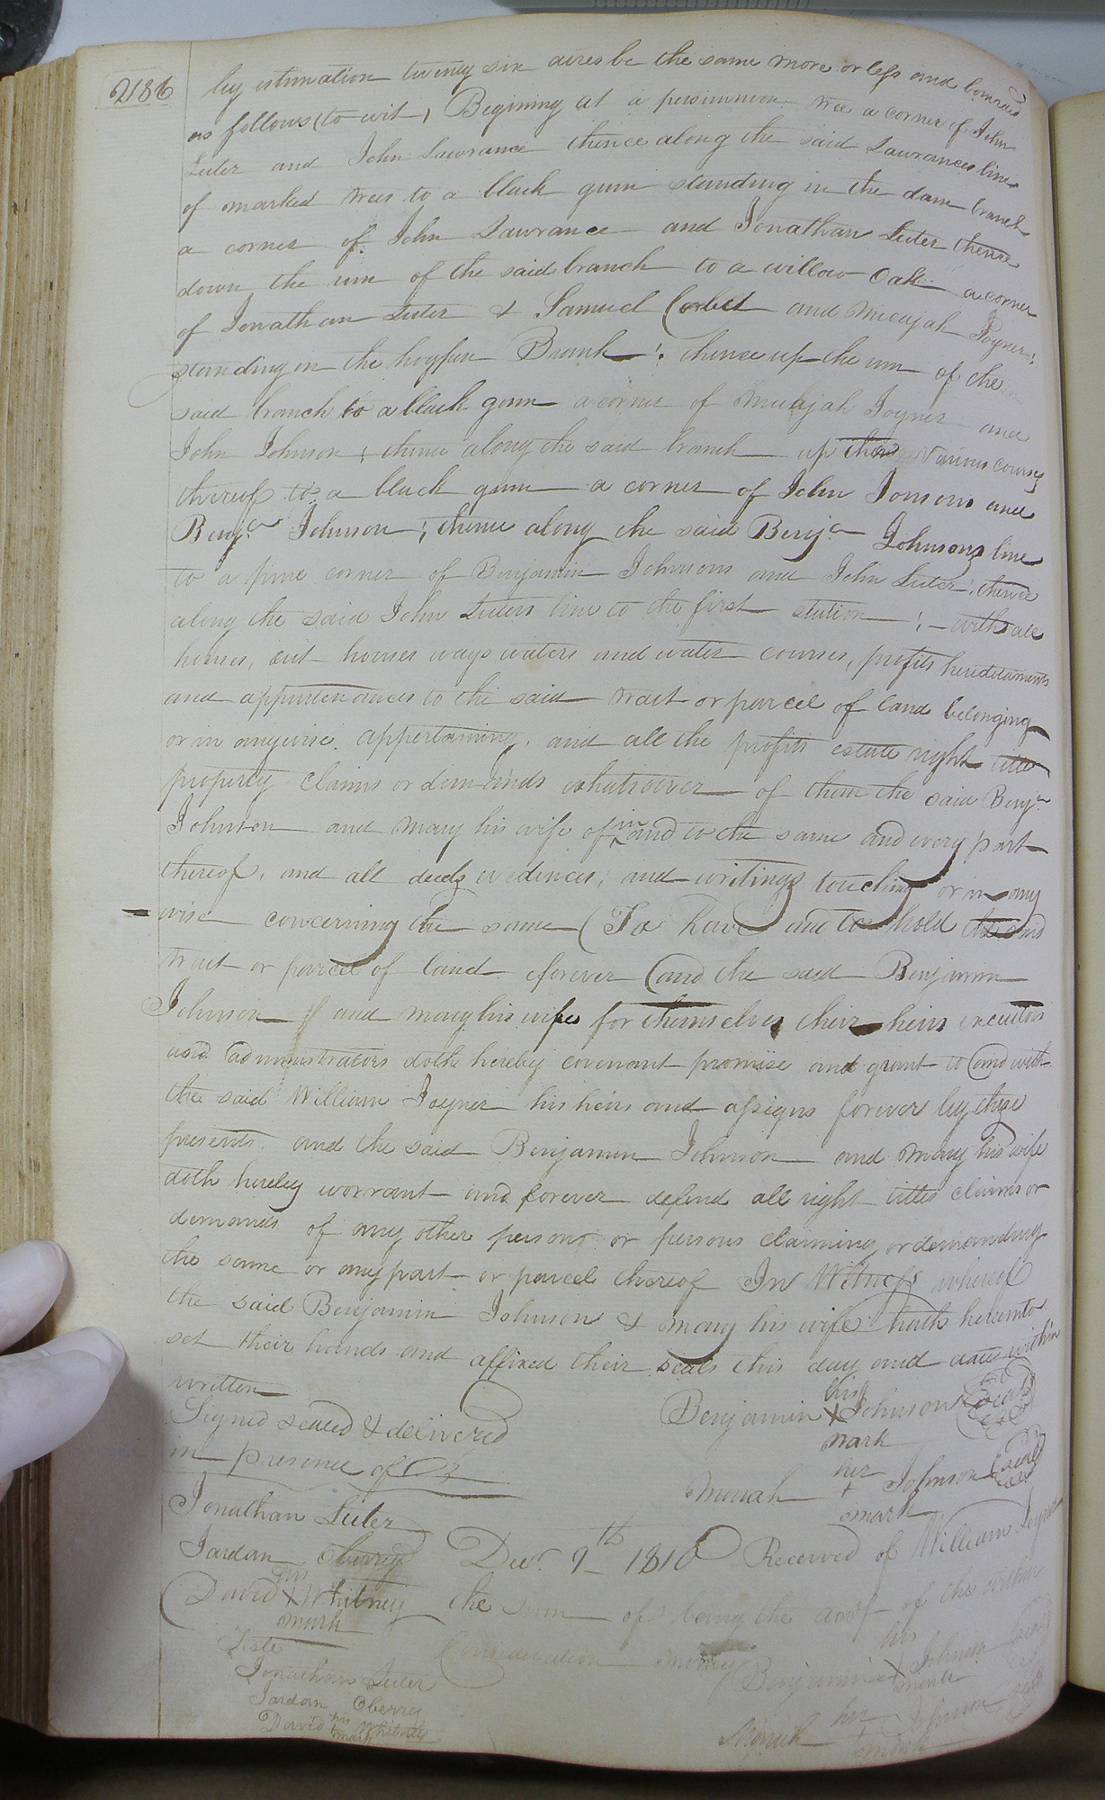 2186
by estimation twenty six acres be the same more or less and bounded
as follows (to wit) Begining at a persimmon tree a corner of John
Luter and John Lawrance thence along the said Lawrances line
of marked trees to a black gum standing in the dam branch
a corner of John Lawrance and Jonathan Luter thence
down the run of the said branch to a willow Oak a corner
of Jonathan Luter & Samuel Corbet and Micajah Joyner
standing in the hogpen Branh; thence up the run of the
said branch to a black gum a corner of Micajah Joyner and
John Johnson; thence along the said branch up the various courses
thereof to a black gum a corner of John Jonsons and
Benja Johnson; thence along the said Benja Johnsons line
to a pine corner of Benjamin Johnsons and John Luter; thence
along the said John Luters line to the first station; with all
houses, out houses ways waters and water courses, profits hereditaments
and appurtenances to the said tract or parcel of land belonging
or in anywise appertaining, and all the profits estate right title
property claims or demands whatsoever of them the said Benja
Johnson and Mary his wife of in and to the same and every part
thereof, and all deeds evidences, and writings touching or in any
wise concerning the same (To have and to hold the said
tract or parcel of land forever (and the said Benjamin
Johnson and Mary his wife for themselves their heirs executors
and administrators doth hereby covenant promise and grant to and with
the said William Joyner his heirs and assigns forever by these
presents and the said Benjamin Johnson and Mary his wife
doth hereby warrant and forever defend all right titles claims or
demands of any other person or persons claiming or demanding
the same or any part or parcel thereof In Witness whereof
the said Benjamin Johnson & Mary his wife hath hereunto
set their hands and affixed their seals this day and date within
written
Signed sealed & delivered
in presence of Us
Benjamin his X mark Johnson (Seal)
Meriah her + mark Johnson (Seal)
Jonathan Luter
Jardan Oberry
David his X mark Whitney
Decr 9th 1810 Received of William Joyner
the sum of being the amt of the within
Consideration money
Teste
Jonathan Luter
Jardan Oberry
David his mark Whitney
Benjamin his X mark Johnson Seal
Meriah her + mark Johnson Seal